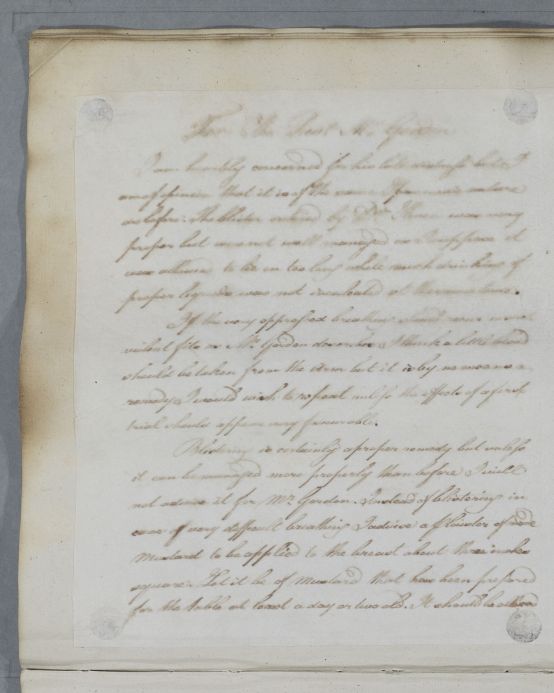 For The Revd Mr. Gordon
I am humbly concerned for his late distress but I
am of opinion that it is of the same Spasmodic nature
as before. The blister ordered by Dr. was very
proper but was not well managed as I suppose it
was allowed to lie on too long while much drinking of
proper liquids was not inculcated at the same time.
If the very oppressed breathing should come in more
violent fits as Mr. Gordon describes I think a little blood
should be taken from the arm but it is by no means a
remedy I would wish to repeat unless the effects of a first
trial should appear very favourable.
Blistering is certainly a proper remedy but unless
it can be managed more properly than before I would
not advise it for Mr. Gordon. Instead of blistering in
case of very difficult breathing I advise a plaister of
mustard to be applied to the breast about three inches
square. Let it be of mustard that has been prepared
for the table at least a day or two old. It should be